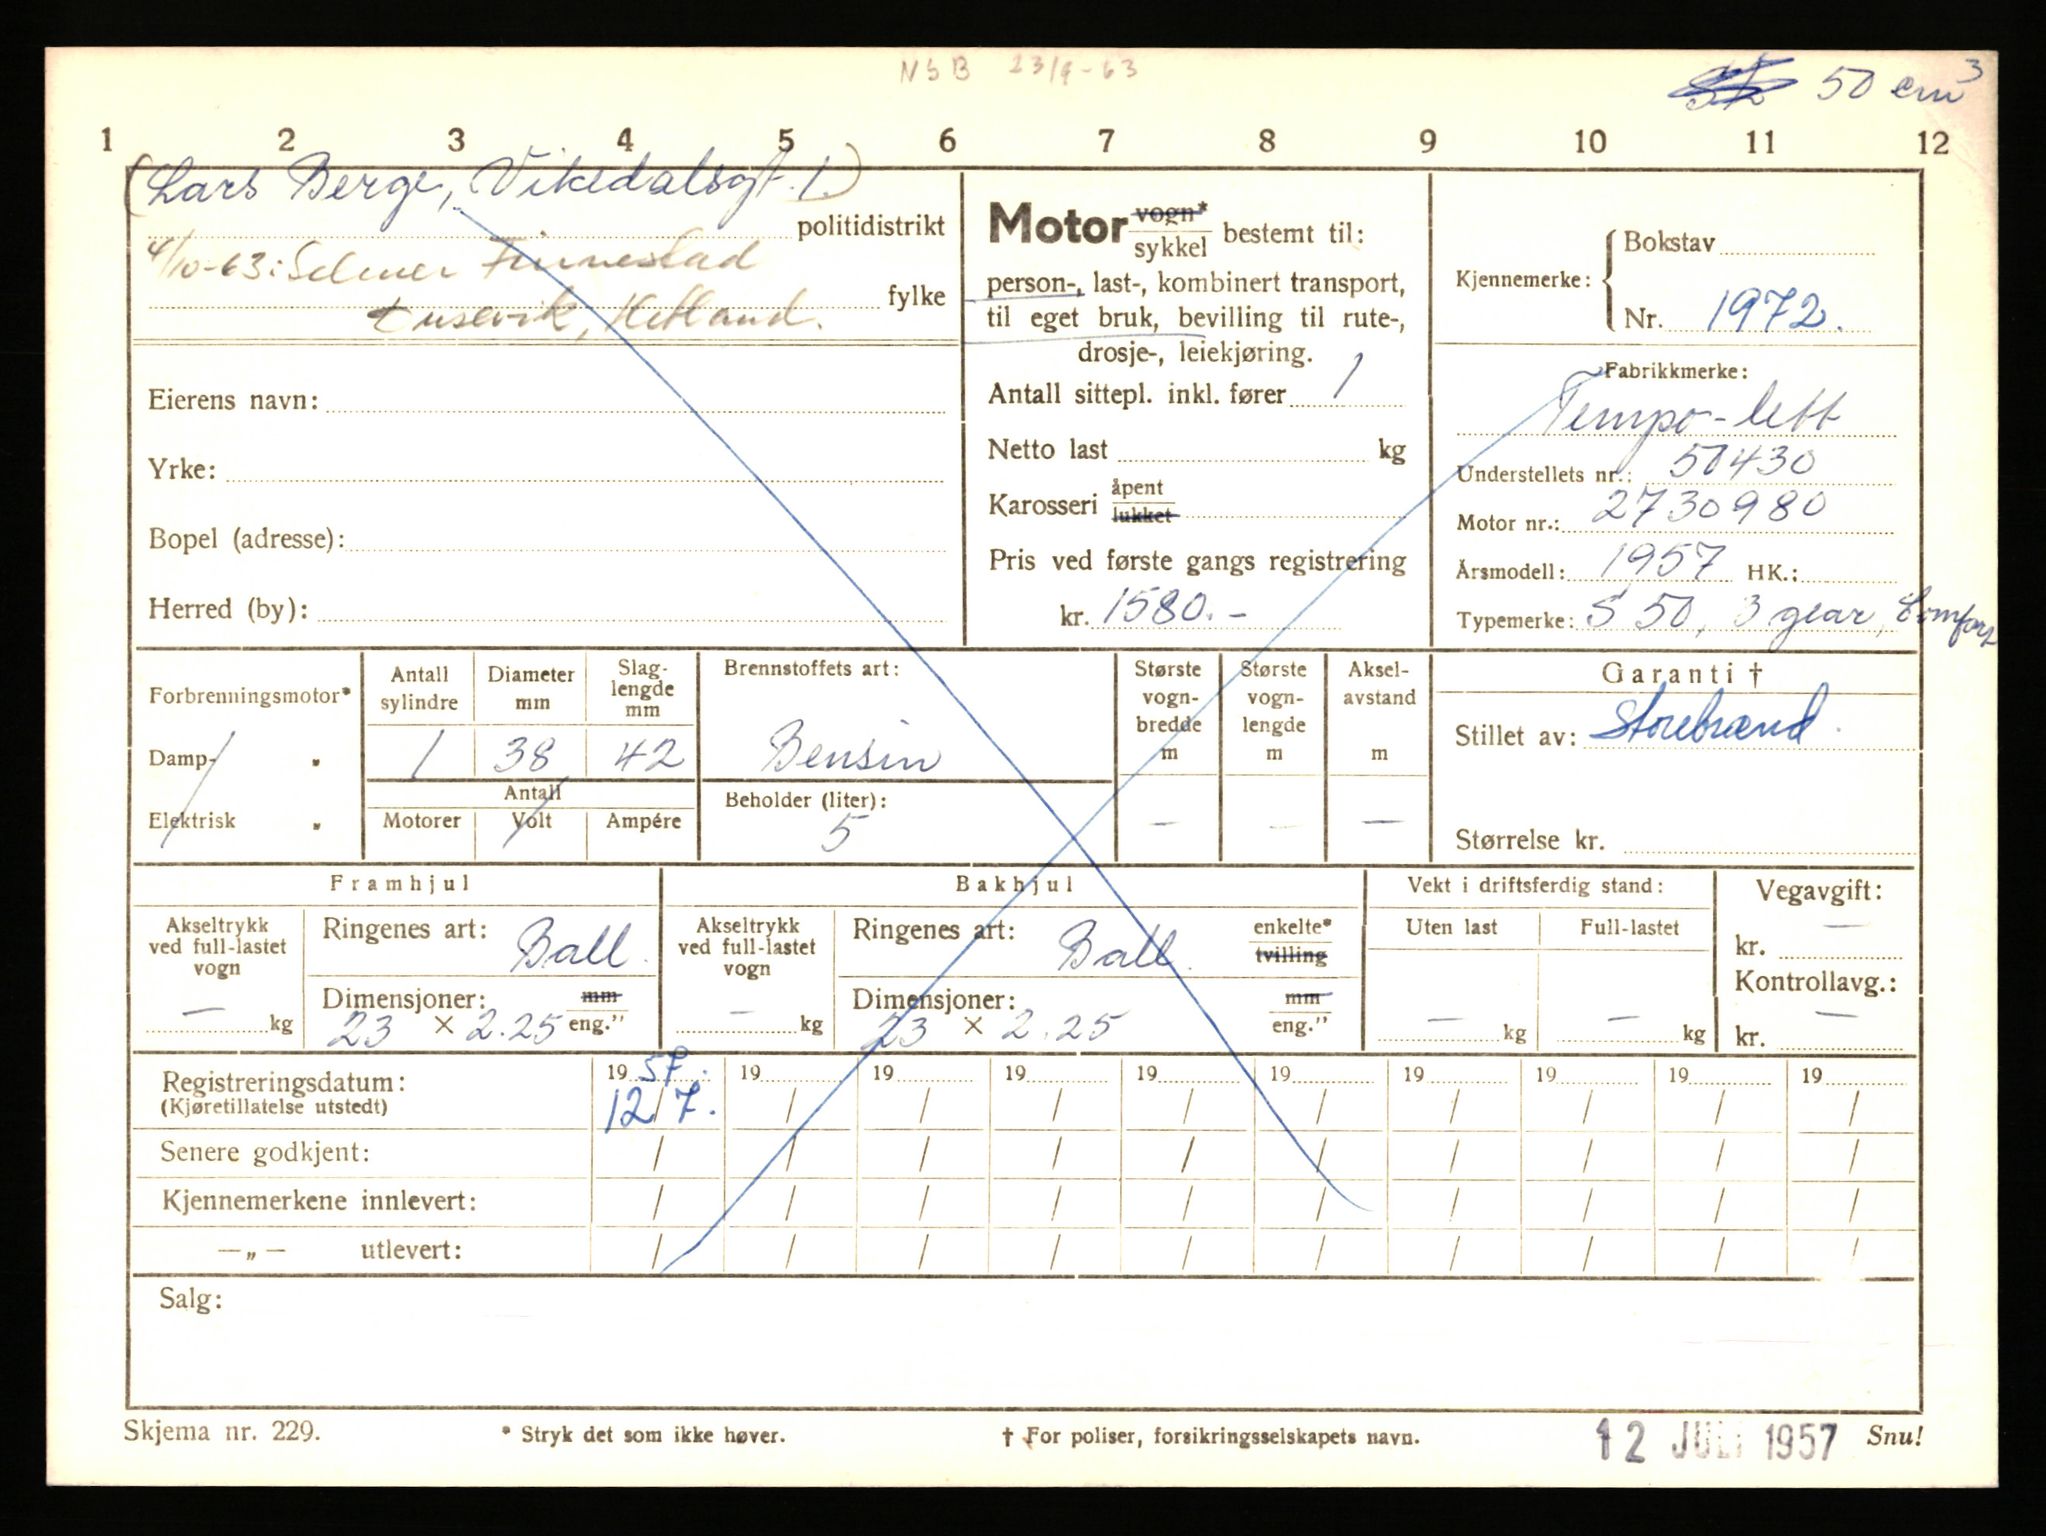 NSB 23/9-63
50 cm³
1 2 3 4 5 6 7 8 9 10 11 12
(Lars Berge, Vikedalsgt. 1.)
politidistrikt
4/10-63: Selmer Finnestad
fylke
Dusevik, Hetland.
Eierens navn:
Yrke:
Bopel (adresse):
Herred (by):
Motor vogn* / sykkel bestemt til:
person-, last-, kombinert transport,
til eget bruk, bevilling til rute-,
drosje-, leiekjøring.
Antall sittepl. inkl. fører 1
Netto last kg
Karosseri åpent / lukket
Pris ved første gangs registrering
kr. 1580.-
Kjennemerke: Bokstav
Nr. 1972.
Fabrikkmerke:
Tempo-lett
Understellets nr.: 50430
Motor nr.: 2730980
Årsmodell: 1957 HK.:
Typemerke: S 50, 3 gear, Comfort
Forbrenningsmotor*
Damp- „
Elektrisk „
Antall sylindre 1
Diameter mm 38
Slag-lengde mm 42
Antall
Motorer Volt Ampére
Brennstoffets art:
Bensin
Beholder (liter):
5
Største vogn-bredde m —
Største vogn-lengde m —
Aksel-avstand m —
Garanti †
Stillet av: Storebrand
Størrelse kr.
Framhjul
Akseltrykk ved full-lastet vogn
— kg
Ringenes art: Ball.
Dimensjoner: mm
23 × 2.25 eng."
Bakhjul
Akseltrykk ved full-lastet vogn
— kg
Ringenes art: Ball. enkelte* / tvilling
Dimensjoner: mm
23 × 2.25 eng."
Vekt i driftsferdig stand:
Uten last Full-lastet
— kg — kg
Vegavgift:
kr. —
Kontrollavg.:
kr. —
Registreringsdatum: 19 57. 19 19 19 19 19 19 19 19 19
(Kjøretillatelse utstedt) 12/7. / / / / / / / / /
Senere godkjent: / / / / / / / / / /
Kjennemerkene innlevert: / / / / / / / / / /
—„— utlevert: / / / / / / / / / /
Salg:
Skjema nr. 229. * Stryk det som ikke høver. † For poliser, forsikringsselskapets navn. 12 JULI 1957 Snu!